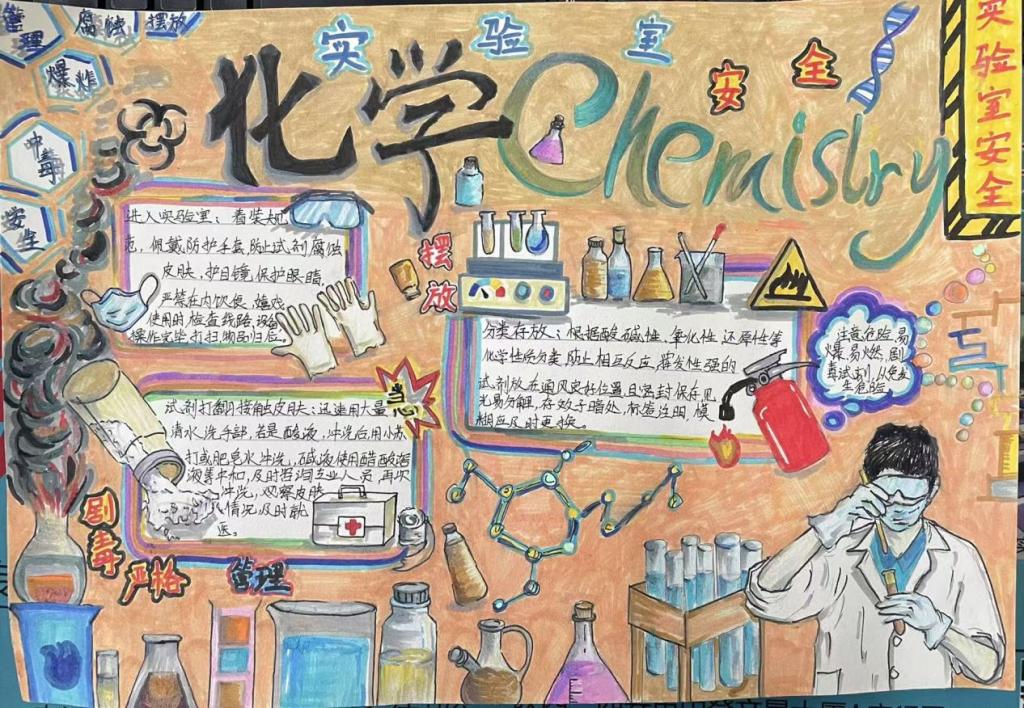 管理
腐蚀
摆放
爆炸
冲毒
安全
实验室
安全
化学
Chemistry
实验室安全
进入实验室：着装规
范，佩戴防护手套，防止试剂腐蚀
皮肤，护目镜，保护眼睛，
严禁在内饮食、嬉戏
使用时检查线路，设备
操作完毕打扫，物品归位。
摆放
分类存放：根据酸碱性、氧化性、还原性等
化学性质分类，防止相互反应，挥发性强的
试剂放在通风良好位置且密封保存，见
光易分解，存放于暗处，标签注明，模
糊应及时更换。
注意危险，易
爆、易燃，剧
毒试剂，以免发
生危险
当心
试剂打翻接触皮肤：迅速用大量
清水洗手部，若是酸液，冲洗后用小苏
打或肥皂水冲洗，碱液使用醋酸溶
液中和，及时咨询专业人员再次
冲洗，观察皮肤
情况，及时就
医。
剧毒
严格
管理